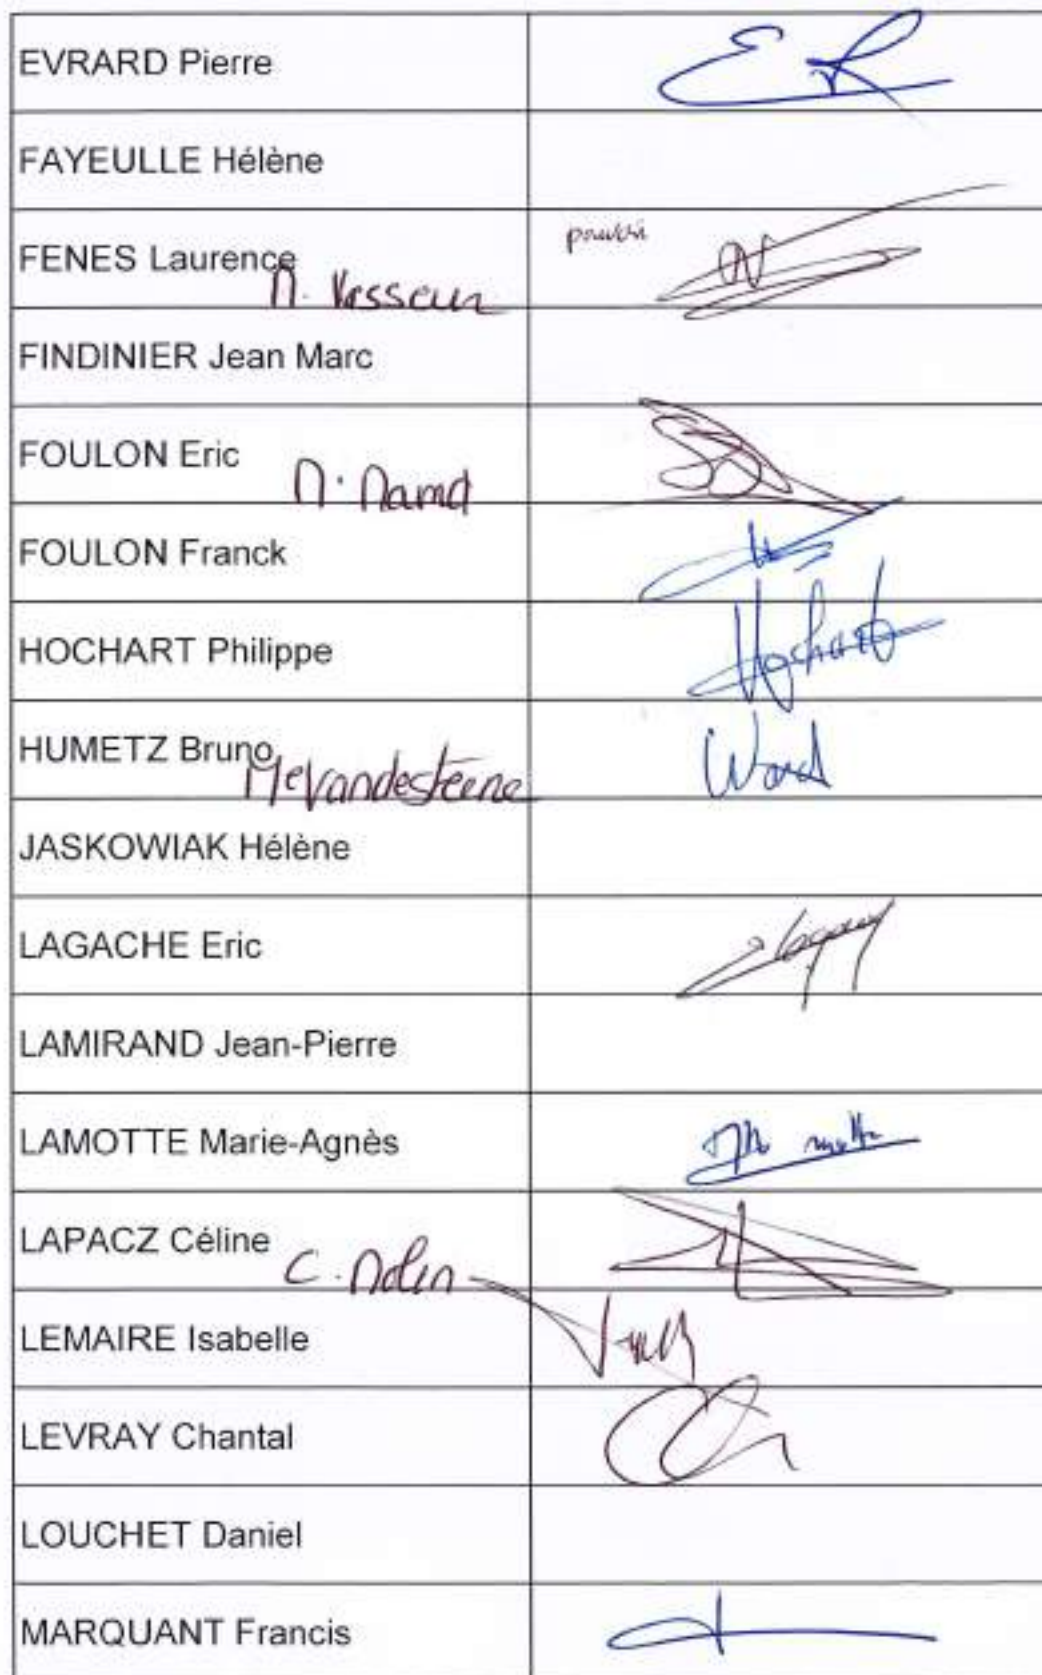 EVRARD Pierre
FAYEULLE Hélène
FENES Laurence pouvoir
M. Vasseur
FINDINIER Jean Marc
FOULON Eric
FOULON Franck
HOCHART Philippe Hochart
HUMETZ Bruno
Vandesteene
JASKOWIAK Hélène
LAGACHE Eric
LAMIRAND Jean-Pierre
LAMOTTE Marie-Agnès
LAPACZ Céline
LEMAIRE Isabelle
LEVRAY Chantal
LOUCHET Daniel
MARQUANT Francis